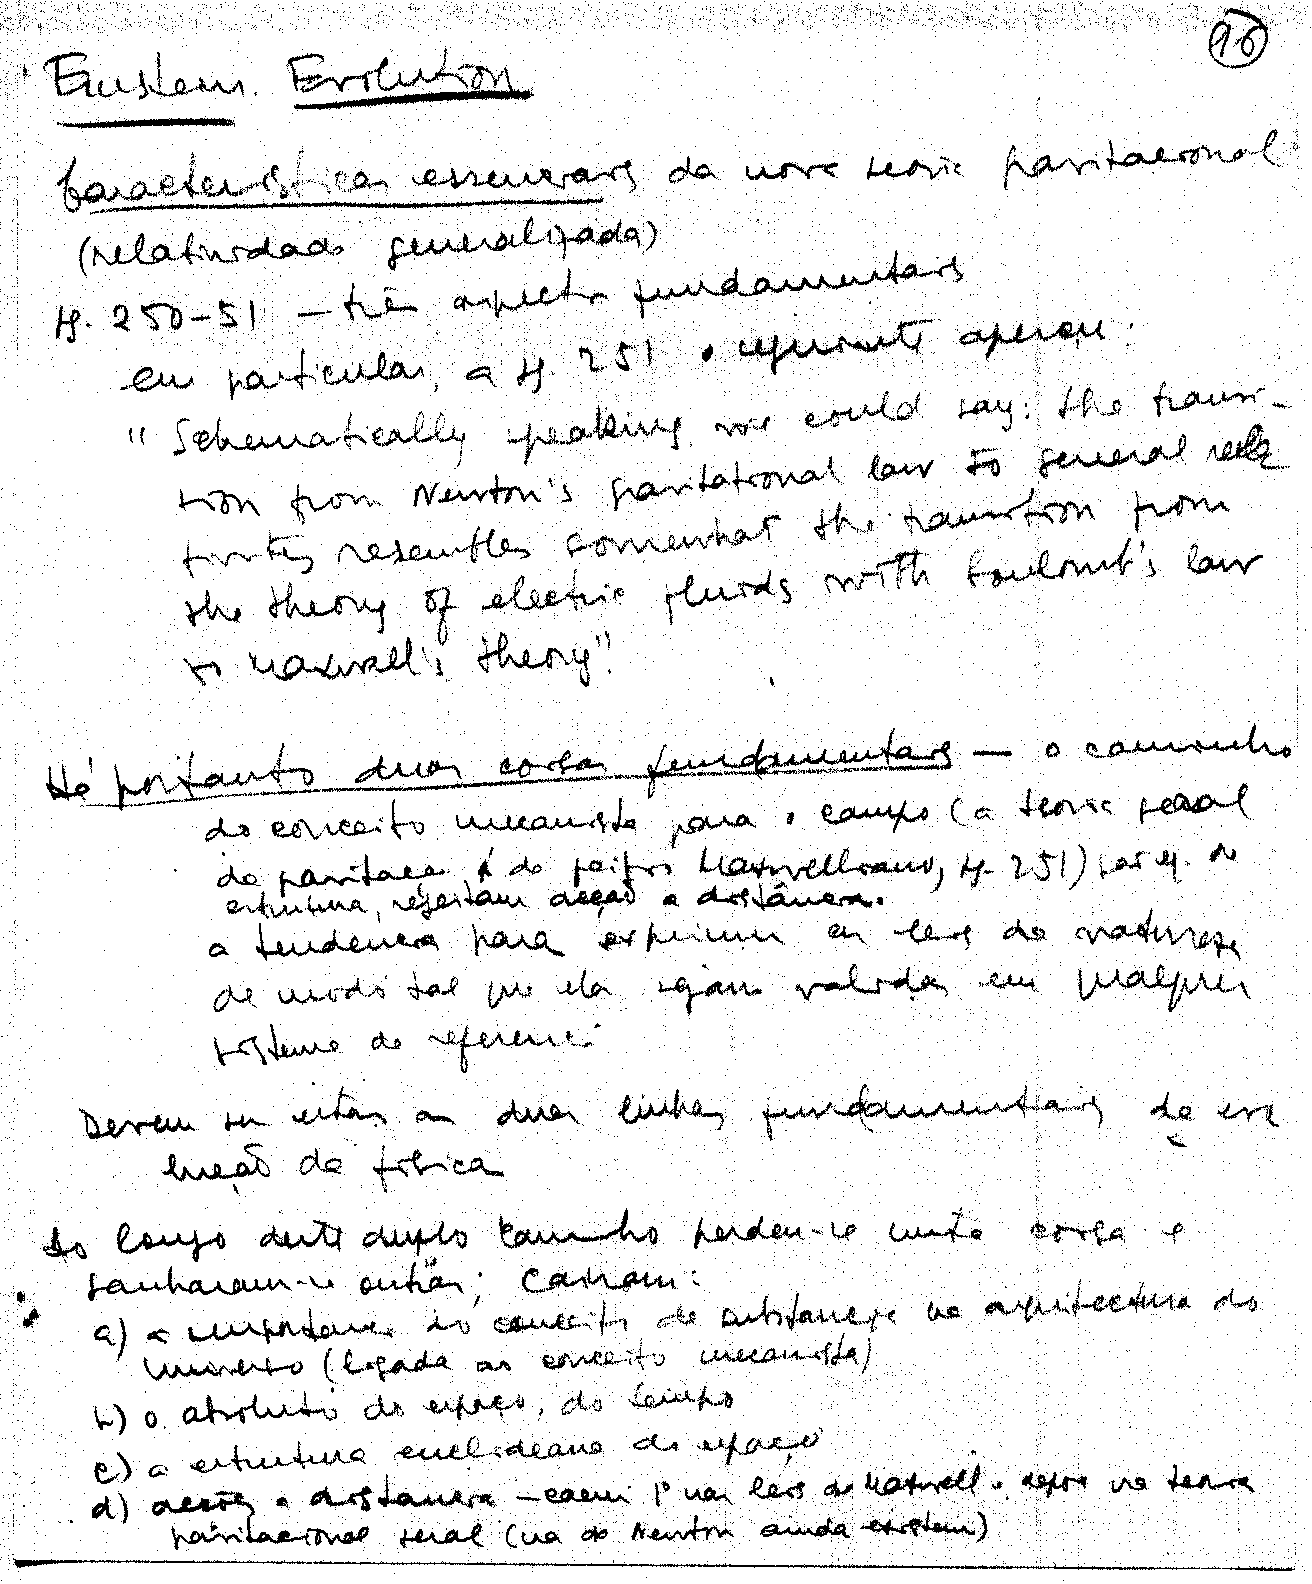 96
Einstein. Evolution
Características essenciais da nova teoria gravitacional
(relatividade generalizada)
pg. 250-51 – três aspectos fundamentais
em particular, a pg. 251 o seguinte aperçu:
"Schematically speaking we could say: the transi-
tion from Newton's gravitational law to general rela
tivity resembles somewhat the transition from
the theory of electric fluids with Coulomb's law
to Maxwell's theory".
Há portanto duas coisas fundamentais – o caminho
do conceito mecanista para o campo (a teoria geral
da gravitaç é de feitio Maxwelliano, pg. 251) leis de
estrutura, rejeitam acção a distância.
a tendência para exprimir as leis da natureza
de modo tal que elas sejam validas em qualquer
sistema de referenc.
Devem ser estas as duas linhas fundamentais da evo
lução da física
Ao longo deste duplo caminho perdeu-se muita coisa e
ganharam-se outras; Caíram:
a) a importancia do conceito de substancia na arquitectura do
Universo (ligada ao conceito mecanista)
b) o absoluto do espaço, do tempo
c) a estrutura euclideana do espaço
d) acções a distância – caem 1º nas leis de Maxwell e depois na teoria
gravitacional geral (na de Newton ainda existem)